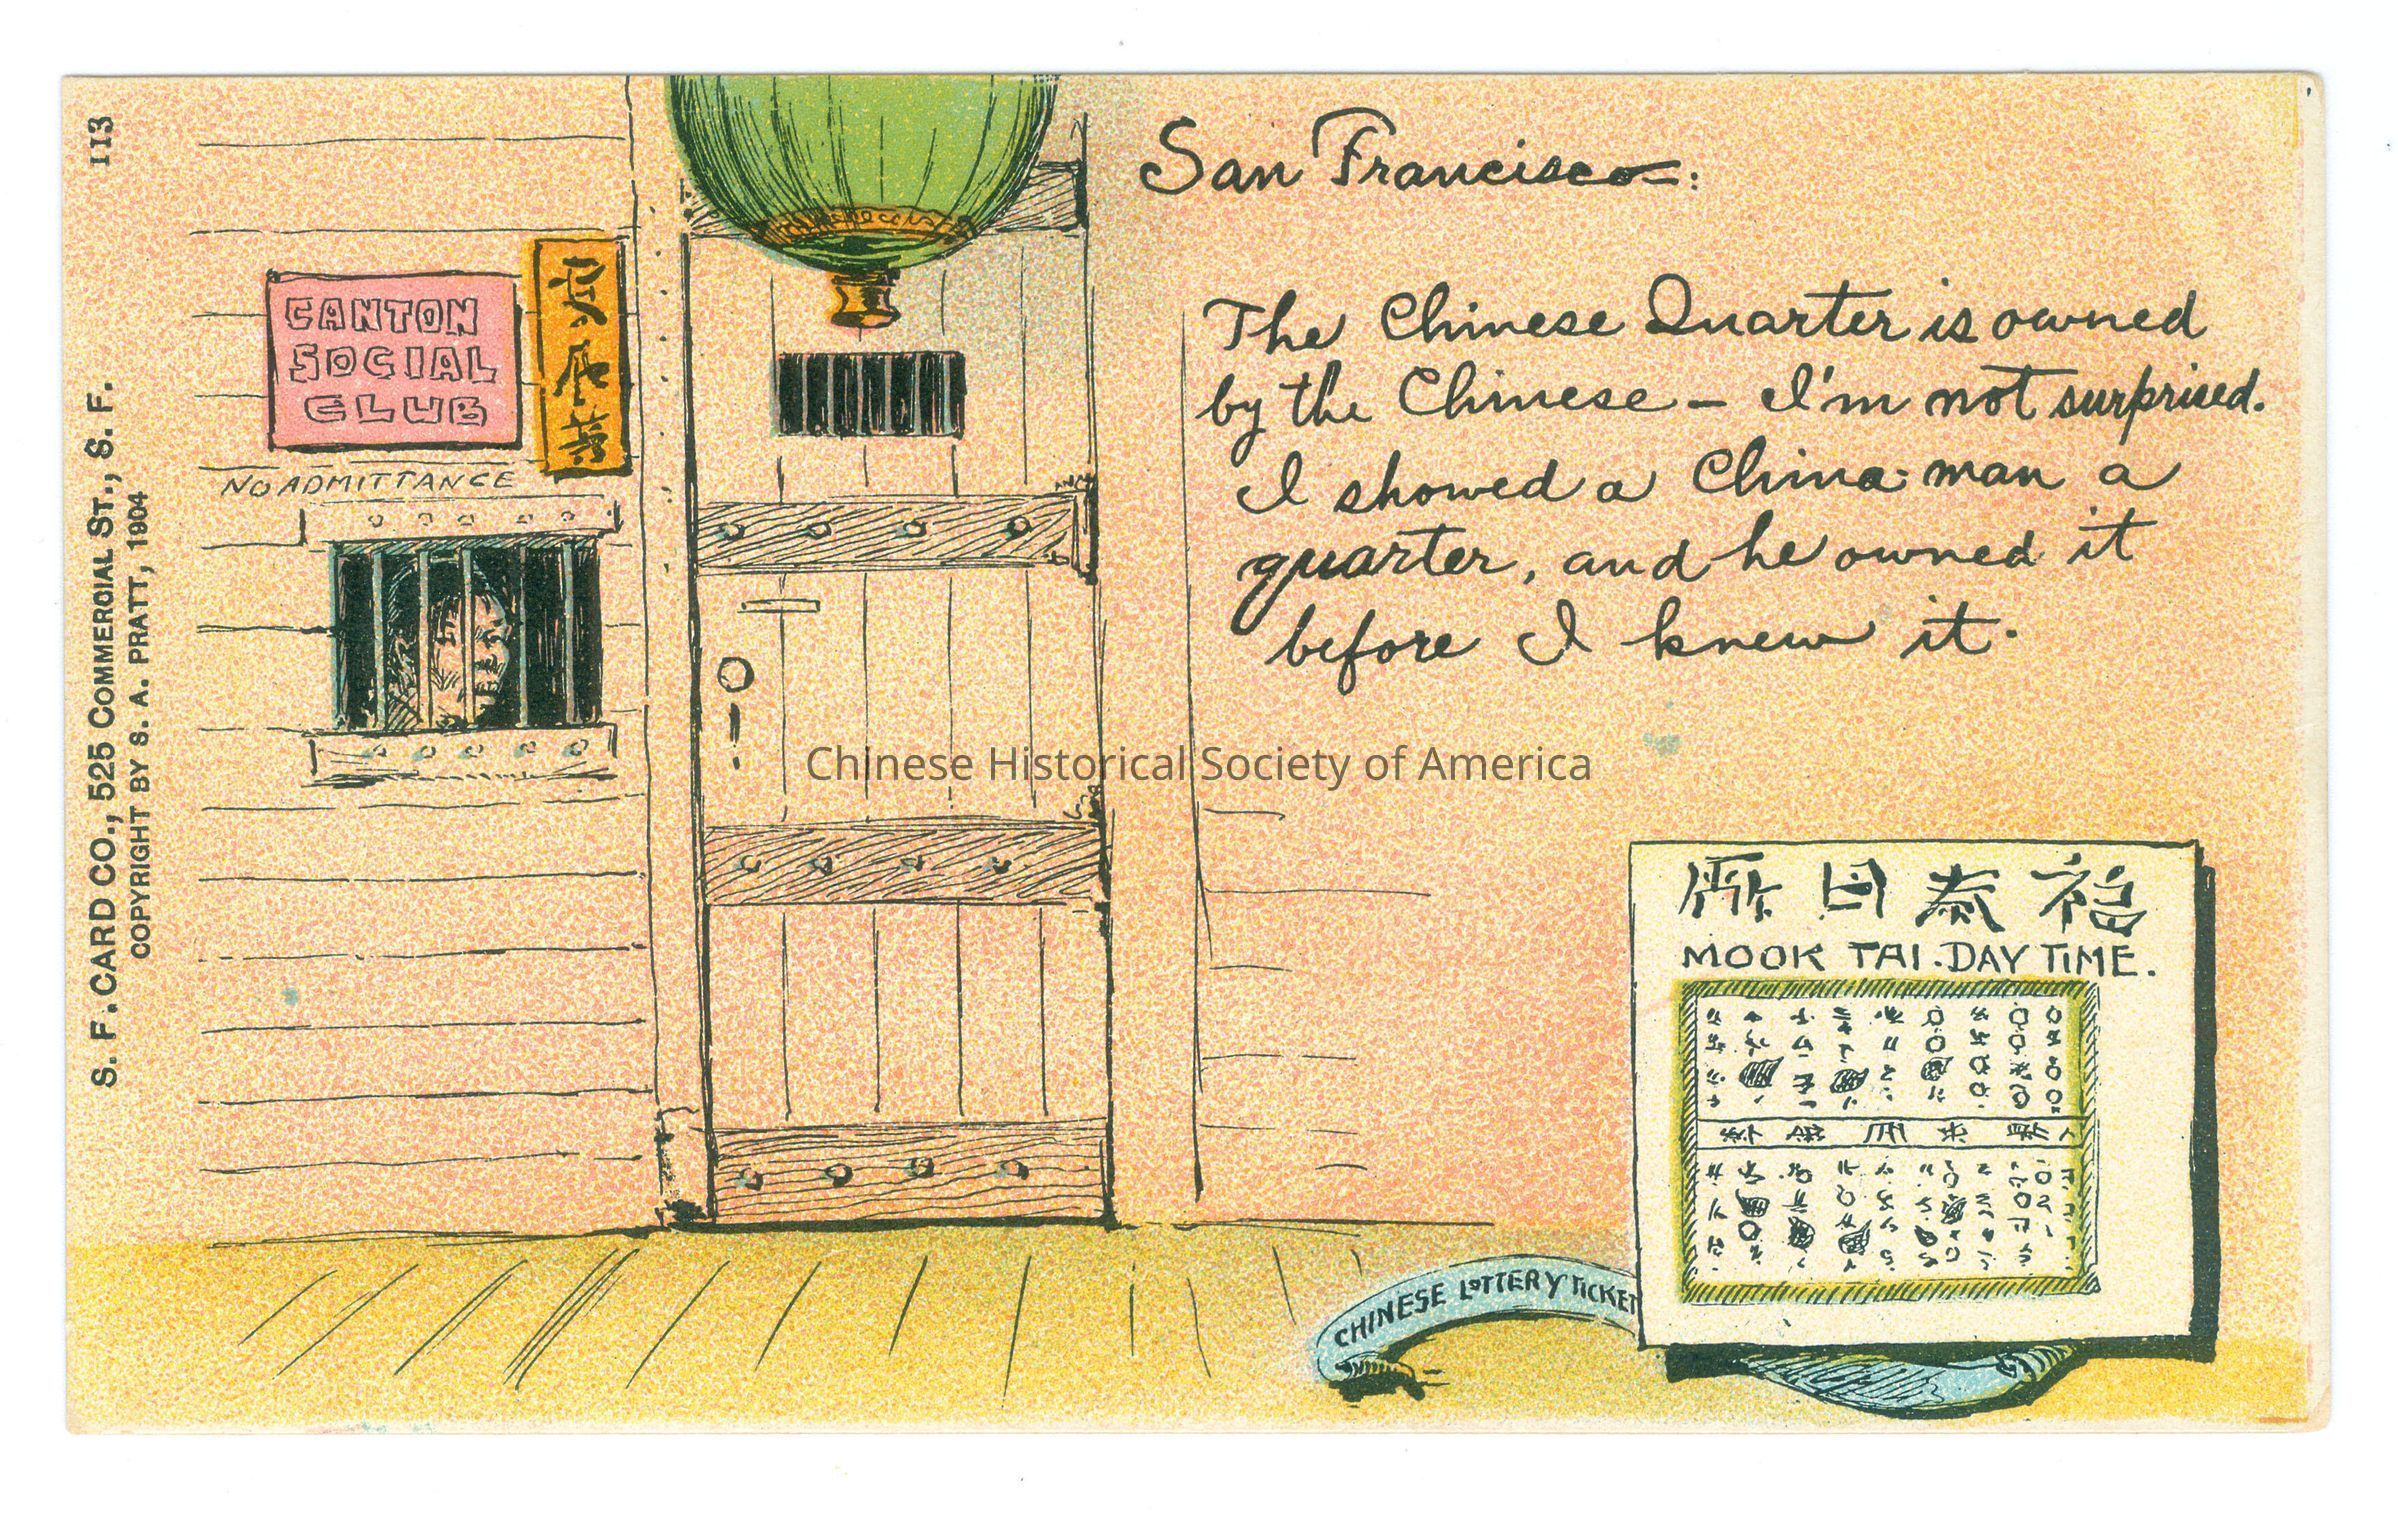 113
S. F. CARD CO., 525 COMMERCIAL ST., S. F.
COPYRIGHT BY S. A. PRATT, 1904
CANTON
SOCIAL
CLUB
NO ADMITTANCE
San Francisco:
The Chinese Quarter is owned
by the Chinese – I'm not surprised.
I showed a China-man a
quarter, and he owned it
before I knew it.
Chinese Historical Society of America
日泰福
MOOK TAI. DAY TIME.
CHINESE LOTTERY TICKET